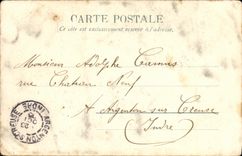 CARTE POSTALE
Ce côté est exclusivement réservé à l'adresse.
Monsieur Adolphe Camus
rue Chateau Neuf
à Argenton sur Creuse
(Indre)
ARGENTON S CREUSE